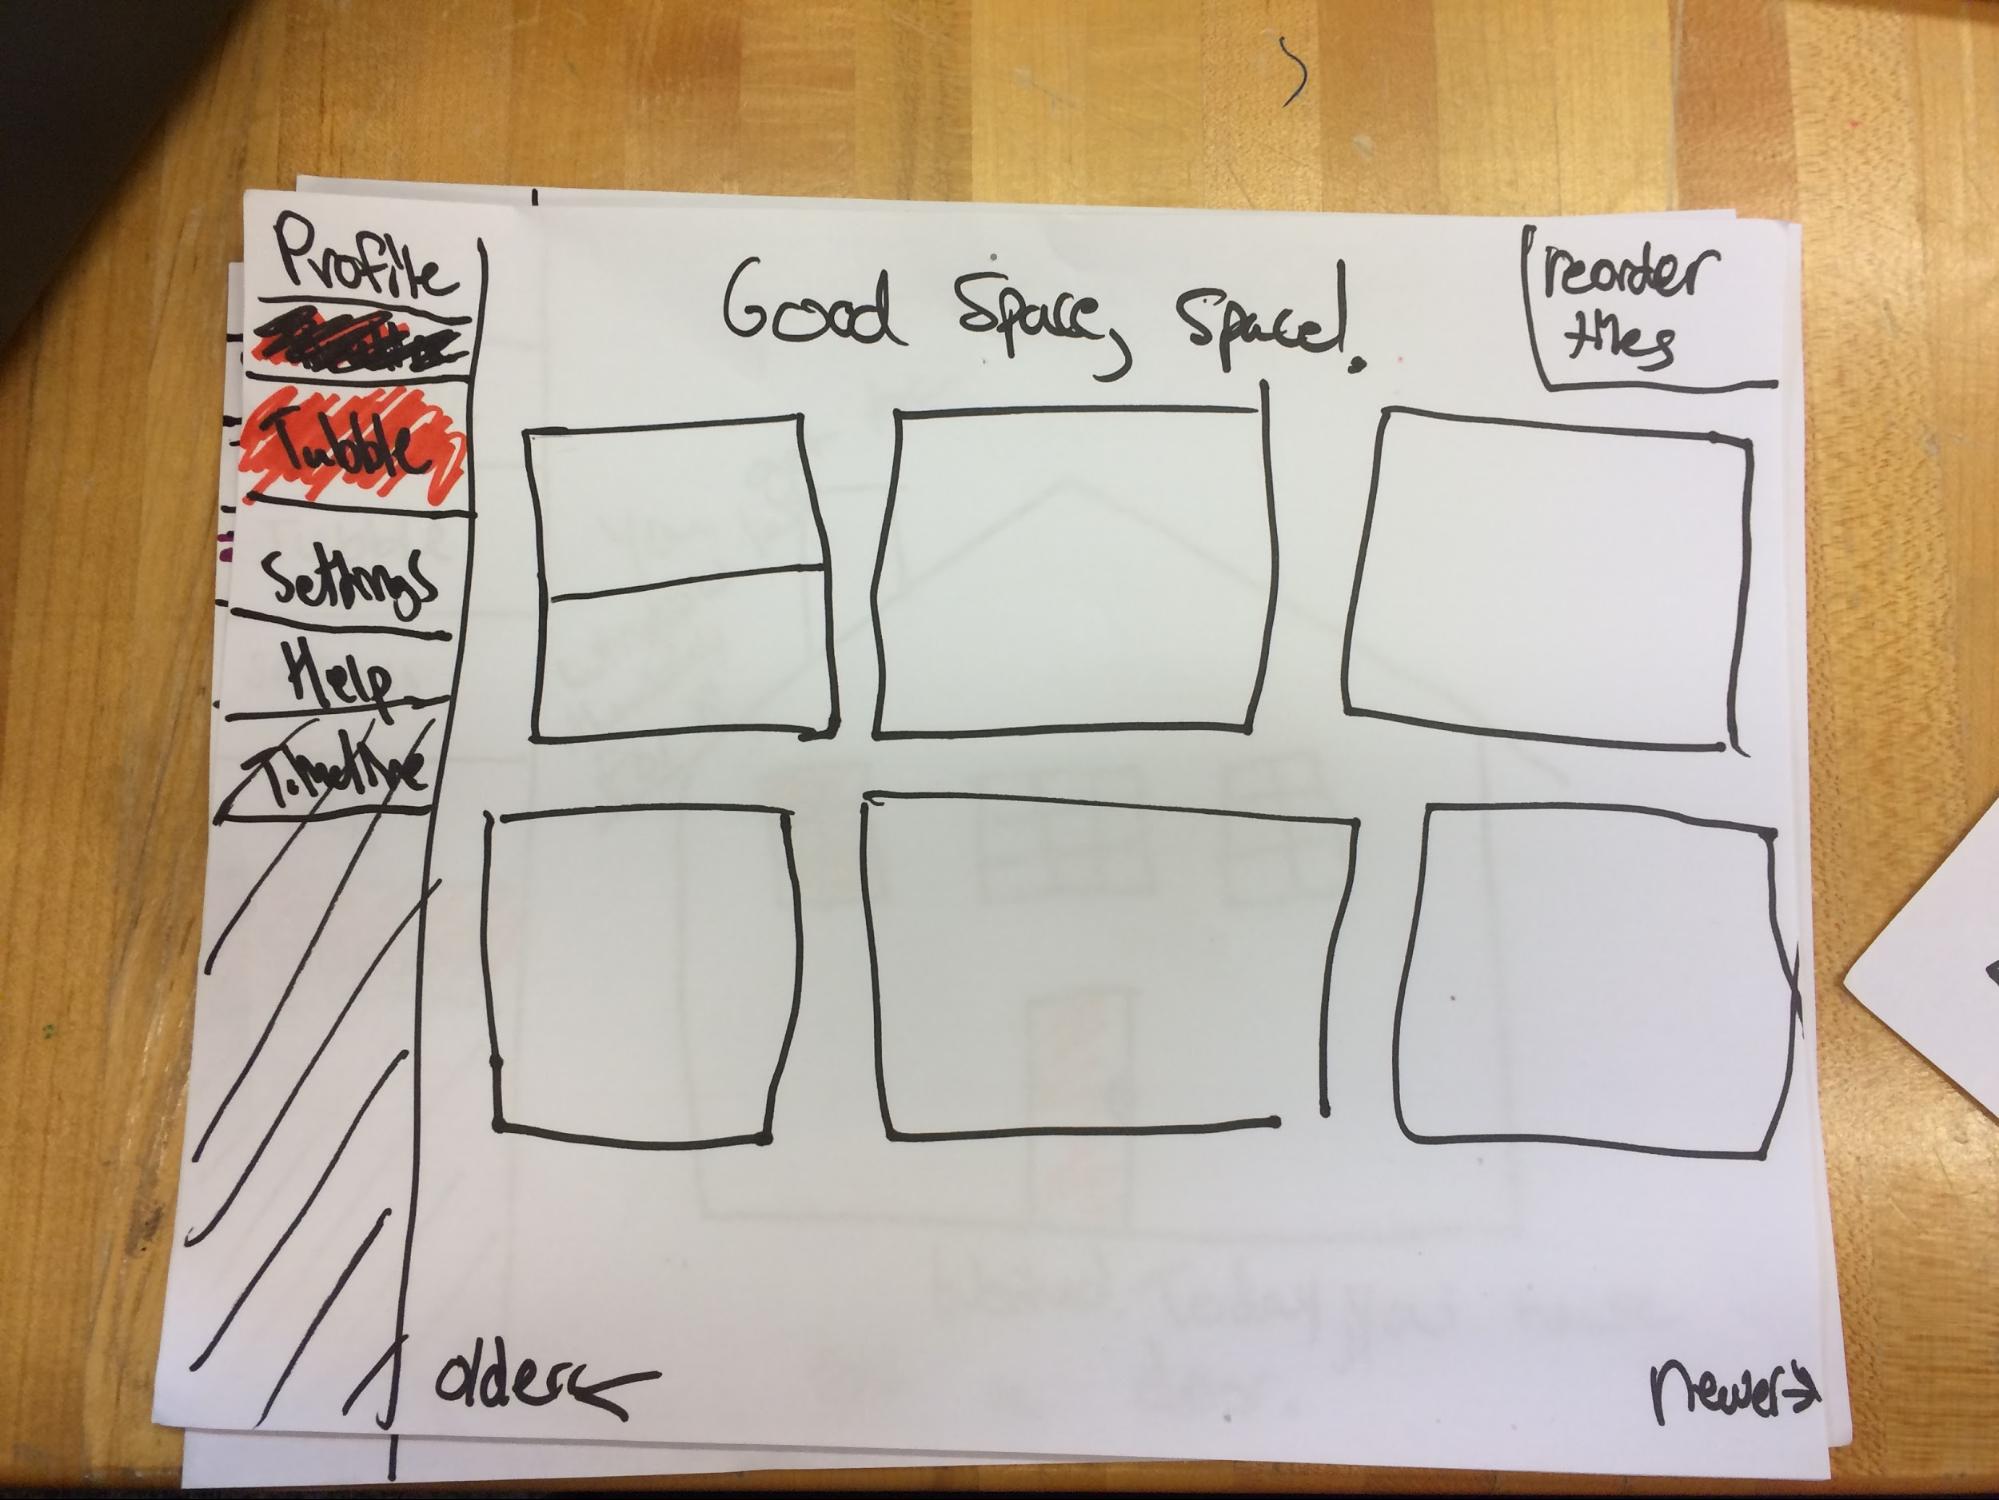 Profile
Tubble
Settings
Help
Timeline
Good Space, Space!
reorder
tiles
older
newer